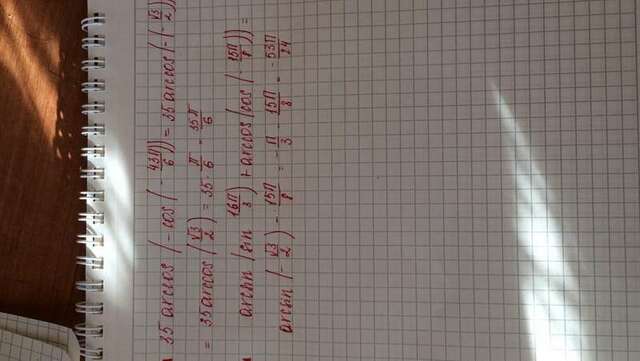 35 arccos (-cos(-43π/6)) = 35 arccos (-(-√3/2))
= 35 arccos (√3/2) = 35·π/6 - 35π/6
arcsin (sin 16π/3) + arccos (cos (-15π/8)) =
arcsin (-√3/2) - 15π/8 = -π/3 - 15π/8 = -53π/24